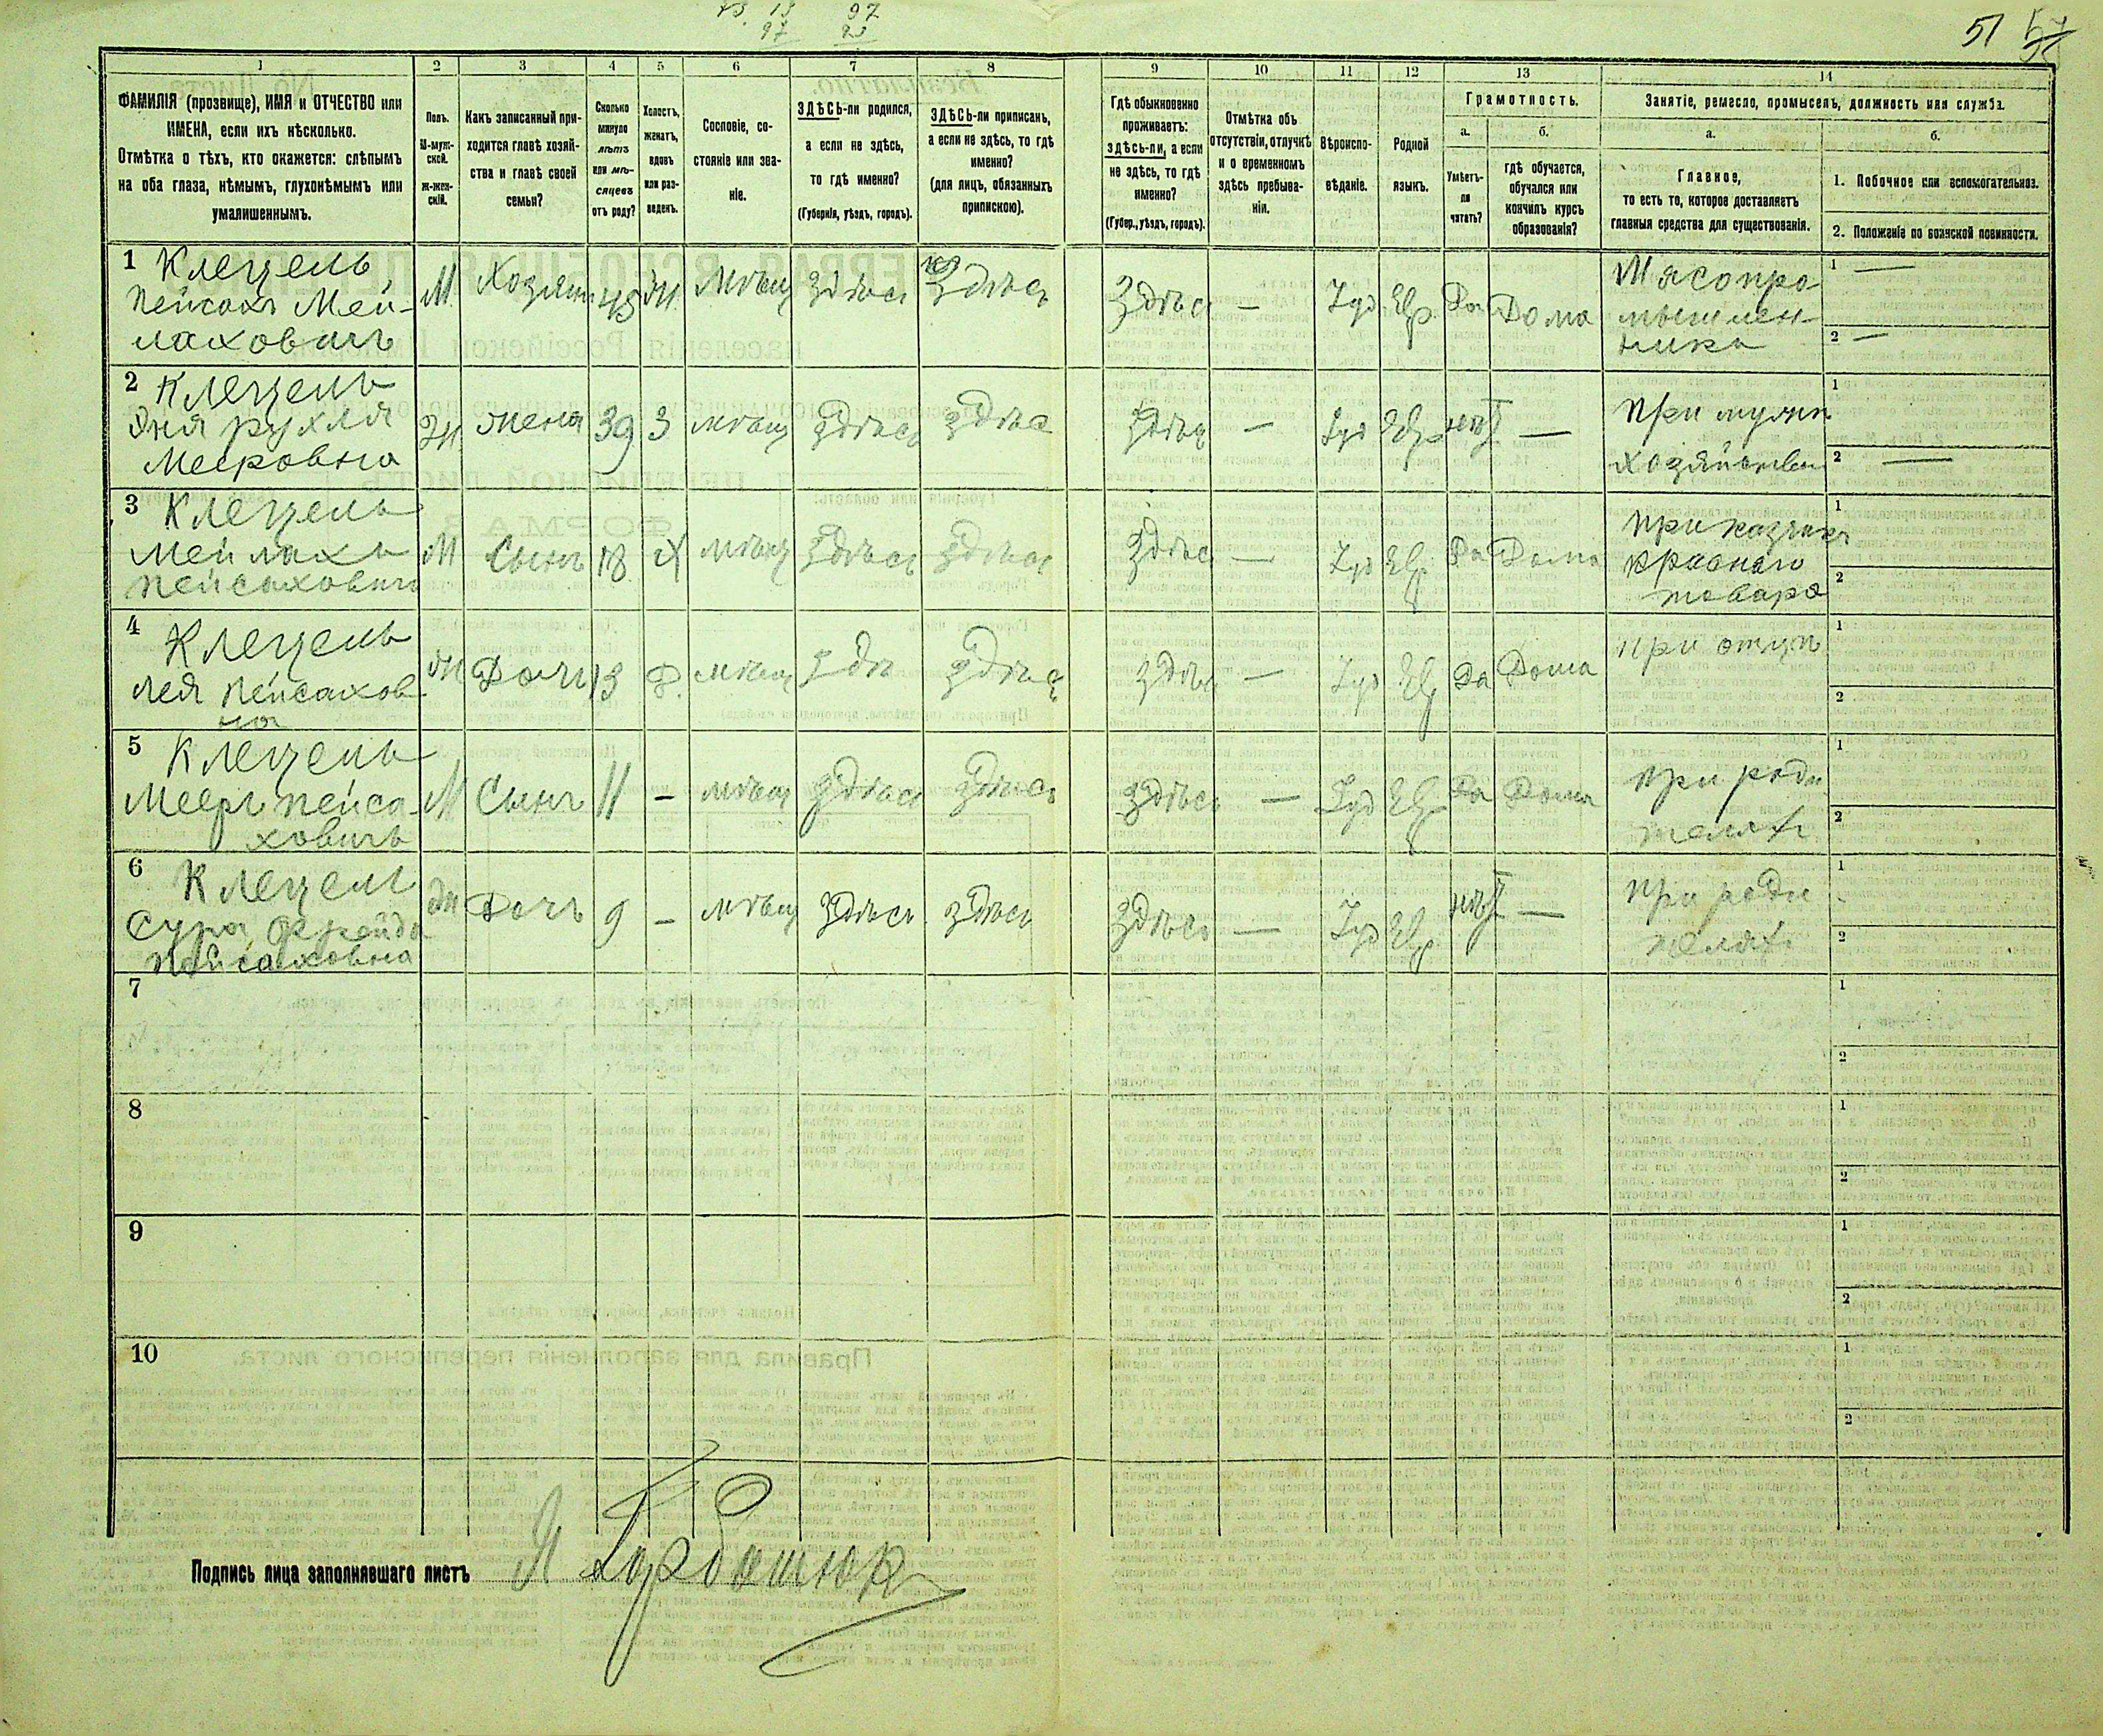 51
1 2 3 4 5 6 7 8 9 10 11 12 13 14
ФАМИЛІЯ (прозвище), ИМЯ и ОТЧЕСТВО или
ИМЕНА, если ихъ нѣсколько.
Отмѣтка о тѣхъ, кто окажется: слѣпымъ
на оба глаза, нѣмымъ, глухонѣмымъ или
умалишеннымъ.
Полъ.
М-муж-
ской.
ж-жен-
скій.
Какъ записанный при-
ходится главѣ хозяй-
ства и главѣ своей
семьи?
Сколько
минуло
лѣтъ
или мѣ-
сяцевъ
отъ роду?
Холостъ,
женатъ,
вдовъ
или раз-
веденъ.
Сословіе, со-
стояніе или зва-
ніе.
ЗДѢСЬ-ли родился,
а если не здѣсь,
то гдѣ именно?
(Губернія, уѣздъ, городъ).
ЗДѢСЬ-ли приписанъ,
а если не здѣсь, то гдѣ
именно?
(для лицъ, обязанныхъ
припискою).
Гдѣ обыкновенно
проживаетъ:
здѣсь-ли, а если
не здѣсь, то гдѣ
именно?
(Губер., уѣздъ, городъ).
Отмѣтка объ
отсутствіи, отлучкѣ
и о временномъ
здѣсь пребыва-
ніи.
Вѣроиспо-
вѣданіе.
Родной
языкъ.
Грамотность.
а.
Умѣетъ-
ли
читать?
б.
гдѣ обучается,
обучался или
кончилъ курсъ
образованія?
Занятіе, ремесло, промыселъ, должность или служба.
а.
Главное,
то есть то, которое доставляетъ
главныя средства для существованія.
б.
1. Побочное или вспомогательное.
2. Положеніе по воинской повинности.
1 Клецель
Пейсахъ Мей-
лаховичъ
М. Хозяинъ 45 Ж. Мѣщ здѣсь здѣсь здѣсь — Іуд. Евр. Да Дома
Мясопро
мышлен
ника
1 —
2 —
2 Клецель
Эня рухля
Мееровна
Ж жена 39 З мѣщ здѣсь здѣсь здѣсь — Іуд Евр нѣт —
при мужѣ
хозяйство
1
2 —
3 Клецель
Мейлахъ
Пейсаховичъ
М Сынъ 18 Х мѣщ здѣсь здѣсь здѣсь — Іуд Евр Да Дома
краснаго
товара
1
2
4 Клецель
Лея Пейсахов
на
Ж Дочь 13 Д. мѣщ здѣ здѣсь здѣсь — Іуд Евр Да Дома
при отцѣ
1
2
5 Клецель
Мееръ Пейса
ховичъ
М Сынъ 11 - мѣщ здѣсь здѣсь здѣсь — Іуд Евр Да Дома
при роди
теляхъ
1
2
6 Клецель
Сура Фрейда
Пейсаховна
Ж Дочь 9 - мѣщ здѣсь здѣсь здѣсь — Іуд Евр нѣт —
при роди
теляхъ
1
2
7
1
2
8
1
2
9
1
2
10
1
2
Подпись лица заполнявшаго листъ